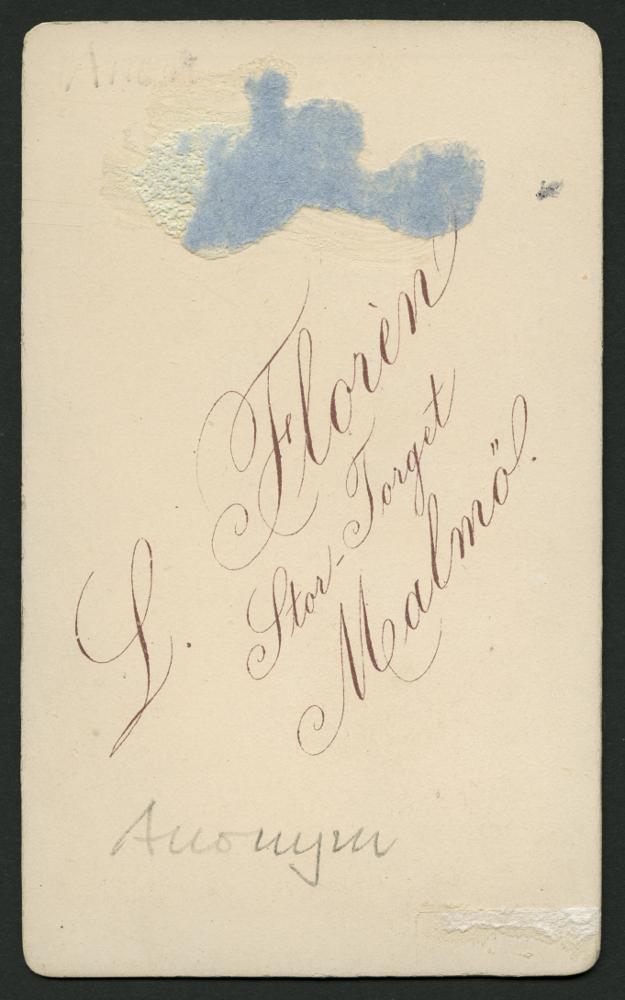 L. Florèn
Stor-Torget
Malmö.
Anonym